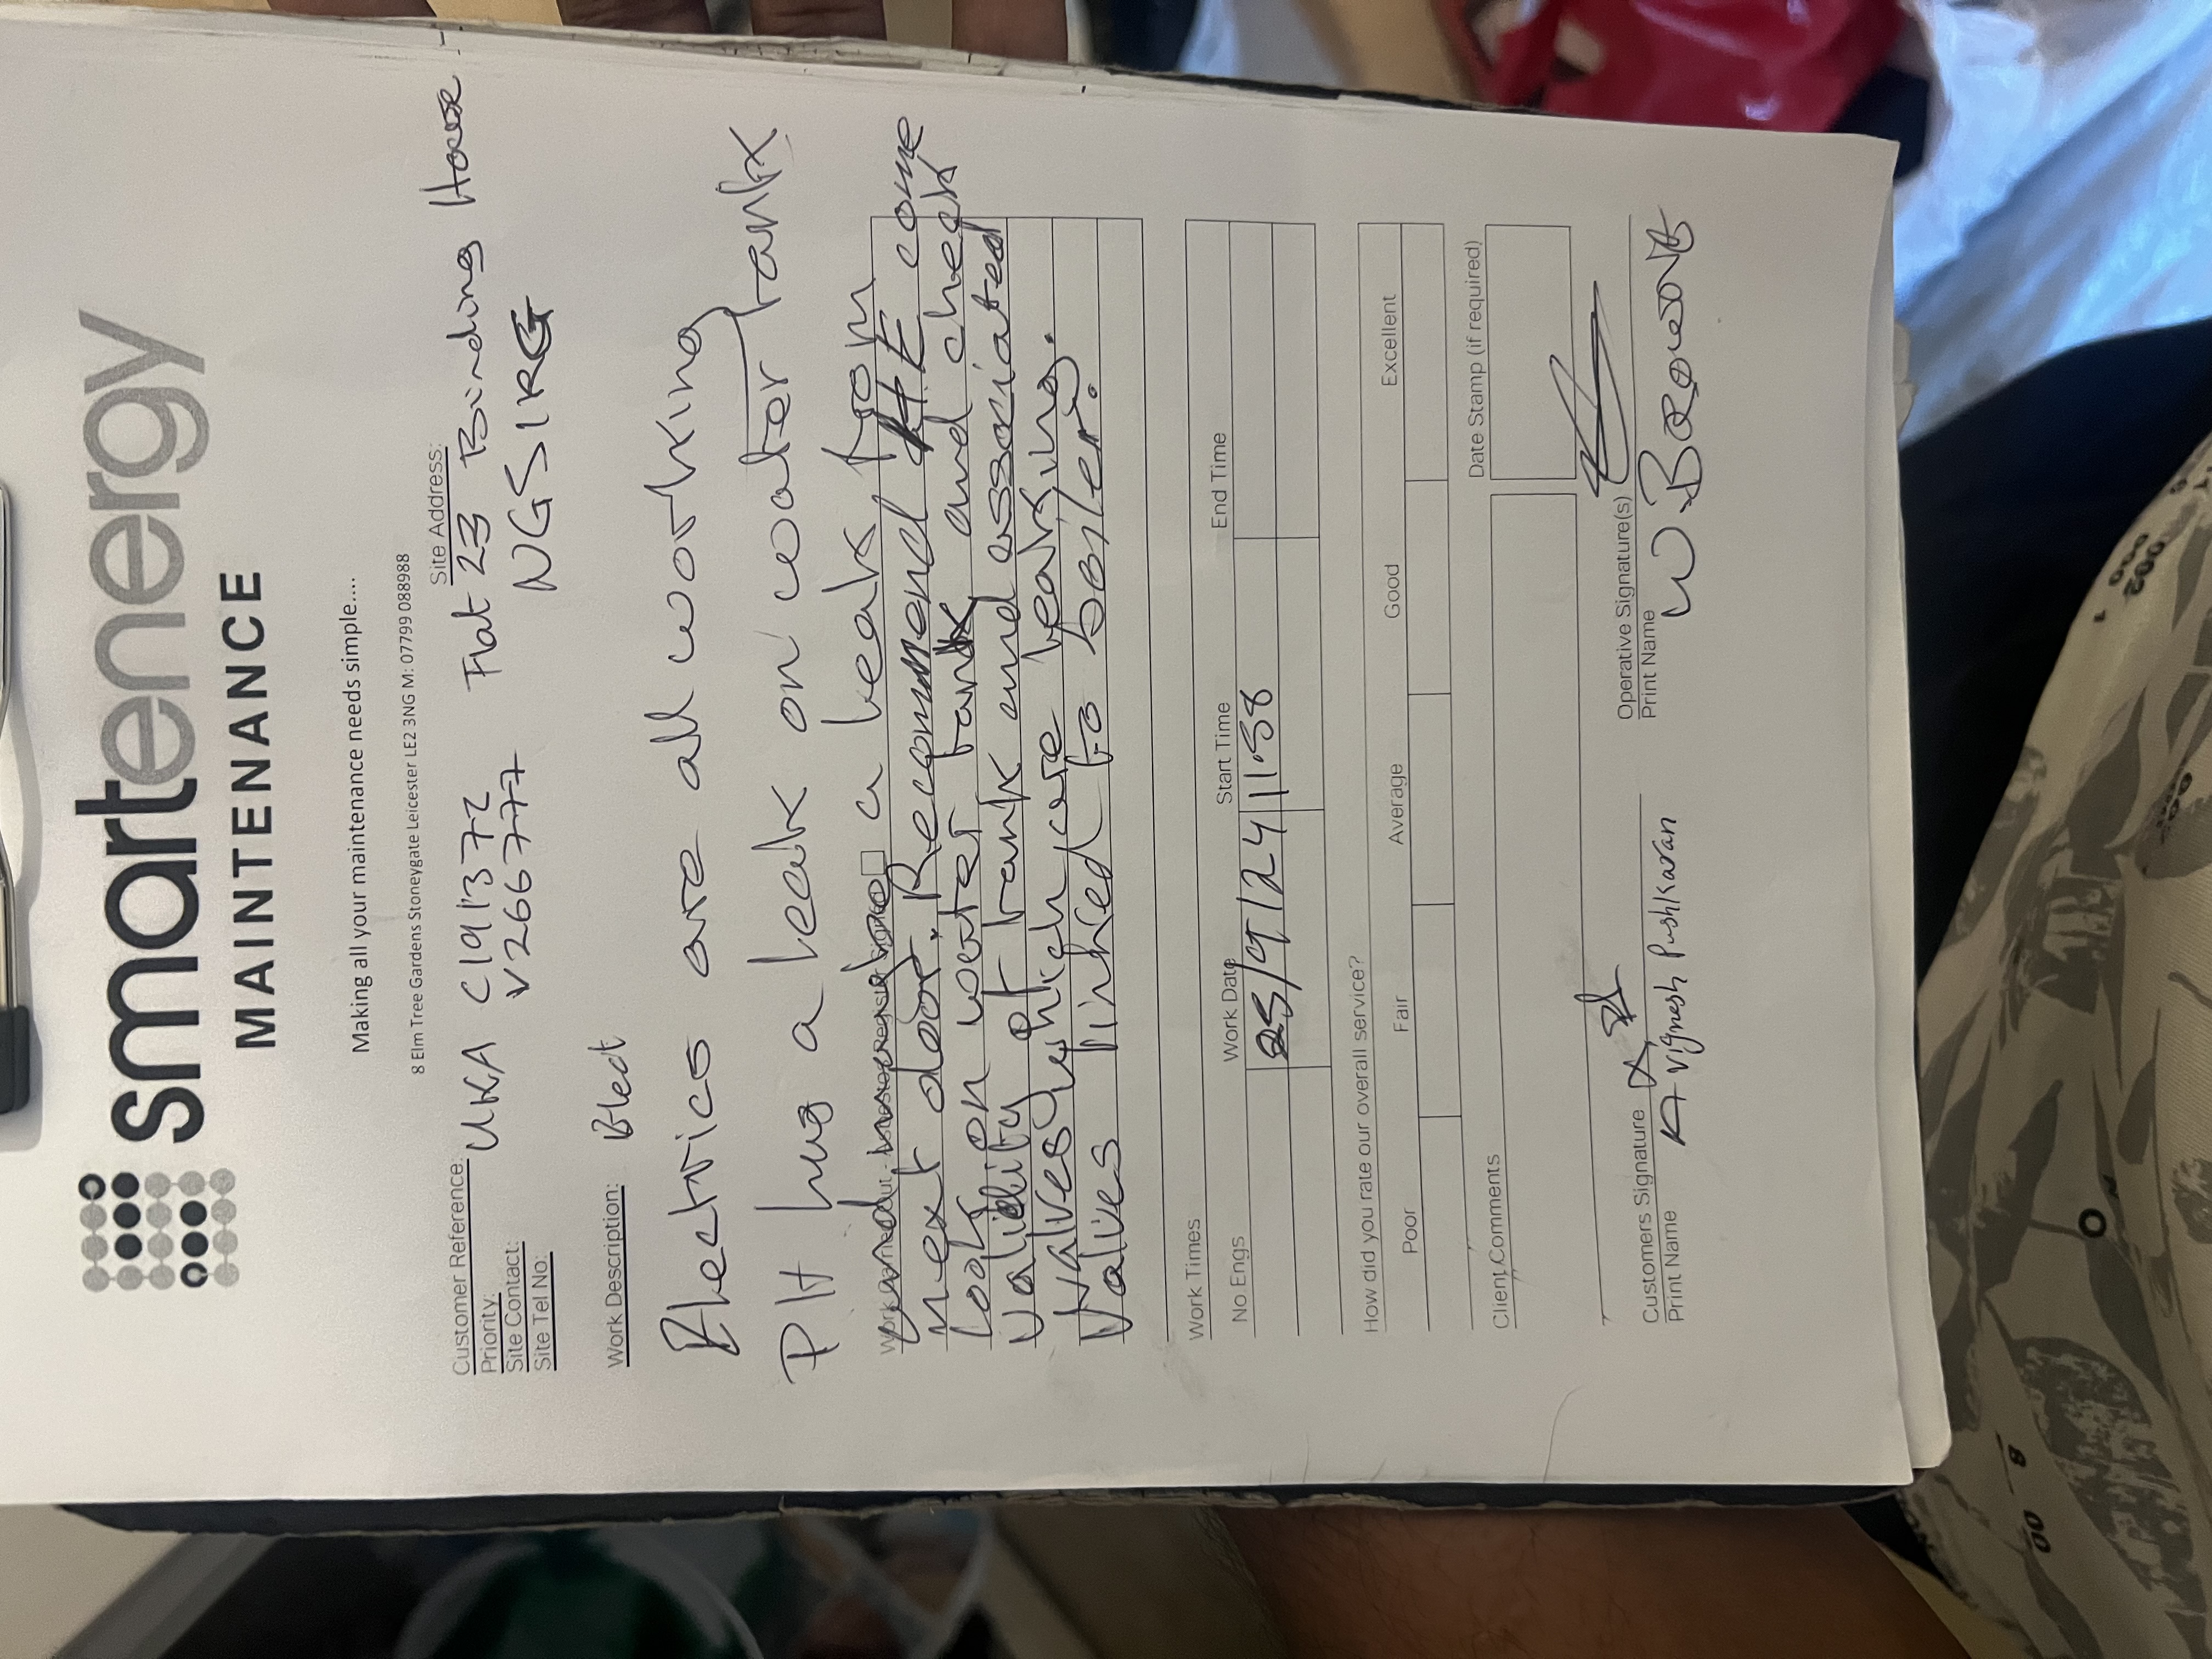 smartenergy
MAINTENANCE
Making all your maintenance needs simple....
8 Elm Tree Gardens Stoneygate Leicester LE2 3NG M: 07799 088988
Customer Reference: UKA C191372
Priority:
Site Contact: V266777
Site Tel No:
Site Address:
Flat 23 Binding House
NG51RG
Work Description: Elect
Electrics are all working
PH has a leak on water tank
Work Carried Out - Asbestos Register Signed
and a leak from
next door. Recommend HE come
look on water tank and check
validity of tank and associated
valves which are leaking.
Valves linked to boiler.
Work Times
No Engs Work Date Start Time End Time
25/9/24 11.58
How did you rate our overall service?
Poor Fair Average Good Excellent
Client Comments
Date Stamp (if required)
Customers Signature
Print Name Vignesh Pushkaran
Operative Signature(s)
Print Name W.